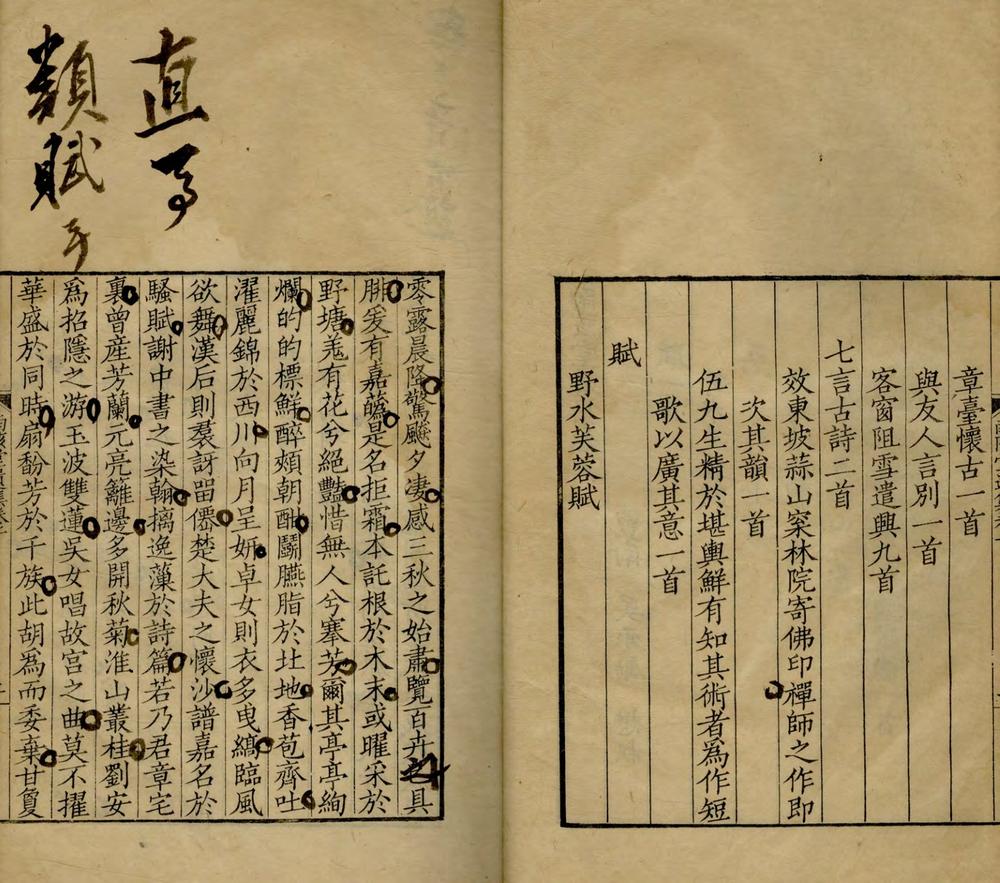 章臺懷古一首
與友人言別一首
客窗阻雪遣興九首
七言古詩二首
效東坡蒜山窠林院寄佛印禪師之作即
次其韻一首
伍九生精於堪輿鮮有知其術者爲作短
歌以廣其意一首
賦
野水芙蓉賦
直
類賦
零露晨隆驚飈夕淒感三秋之始肅覽百卉之具
腓爰有嘉蘤是名拒霜本託根於木末或曜采於
野塘羗有花兮絕豔惜無人兮搴芳爾其亭亭絢
爛的的標鮮醉頰朝酣鬬臙脂於北地香苞齊吐
濯麗錦於西川向月呈妍卓女則衣多曳縞臨風
欲舞漢后則羣訝畱僊楚大夫之懷沙譜嘉名於
騷賦謝中書之染翰摛逸藻於詩篇若乃君章宅
裏曾產芳蘭元亮籬邊多開秋菊淮山叢桂劉安
爲招隱之游玉波雙蓮吳女唱故宮之曲莫不擢
華盛於同時扇馚芳於千族此胡爲而委棄甘敻